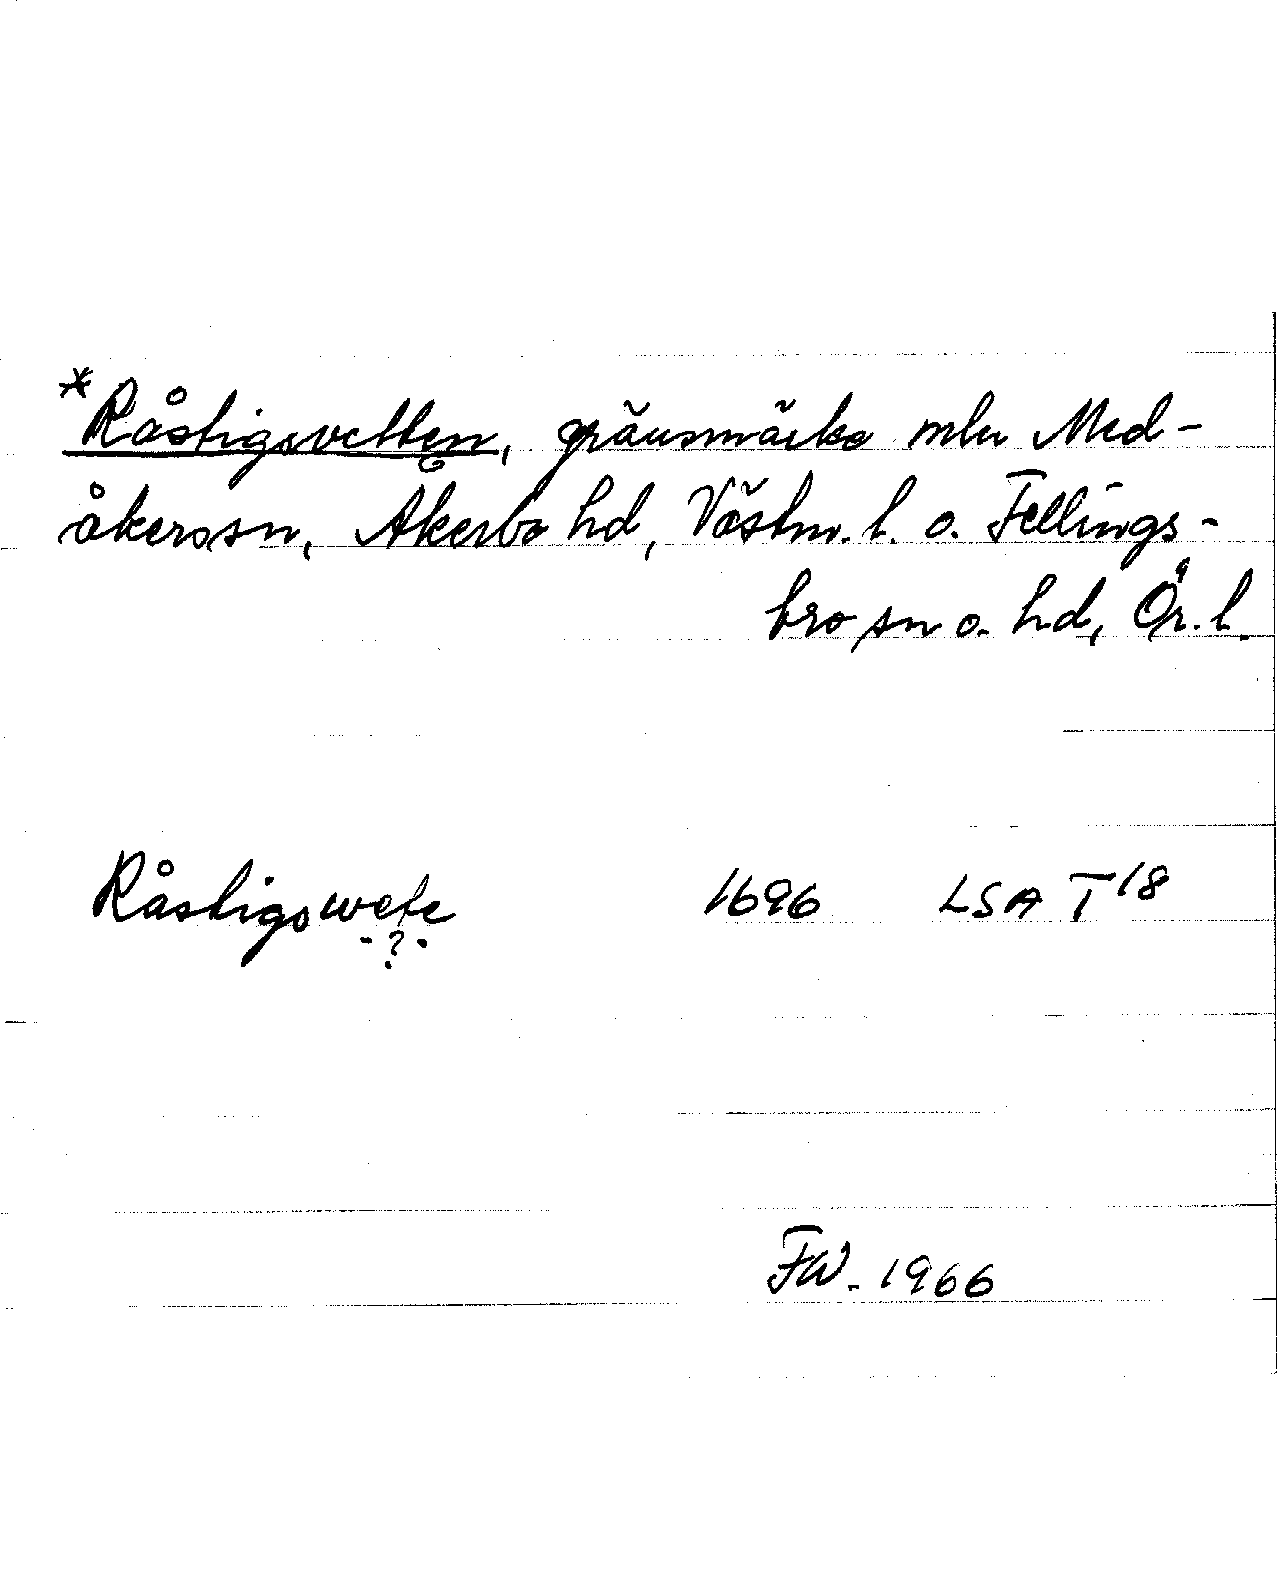 *Råstigsvetten, gränsmärke mln Med-
åkers sn, Åkerbo hd, Västm. l. o. Fellings-
bro sn o. hd, Ör. l.
Råstigswete 1696 LSA T 18
-?-
FW. 1966